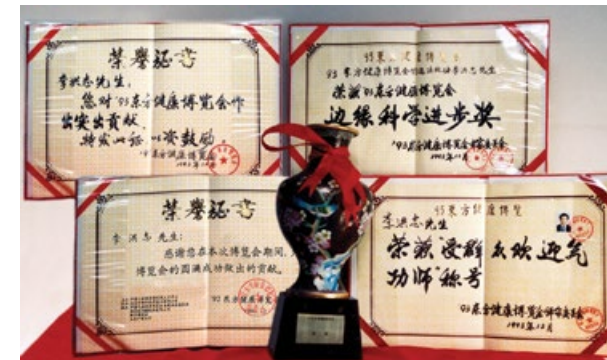 荣誉证书
李洪志先生:
您对'93东方健康博览会作
出突出贡献,
特发此证以资鼓励。
'93东方健康博览会
1993年12月
93东方健康博览会
荣获'93东方健康博览会
边缘科学进步奖
'93东方健康博览会评审委员会
1993年12月
荣誉证书
李洪志先生:
感谢您在本次博览会期间,
博览会的圆满成功做出的贡献。
'93东方健康博览
93东方健康博览
李洪志先生
荣获受群众欢迎气
功师称号
93东方健康博览会评审委员会
1993年12月